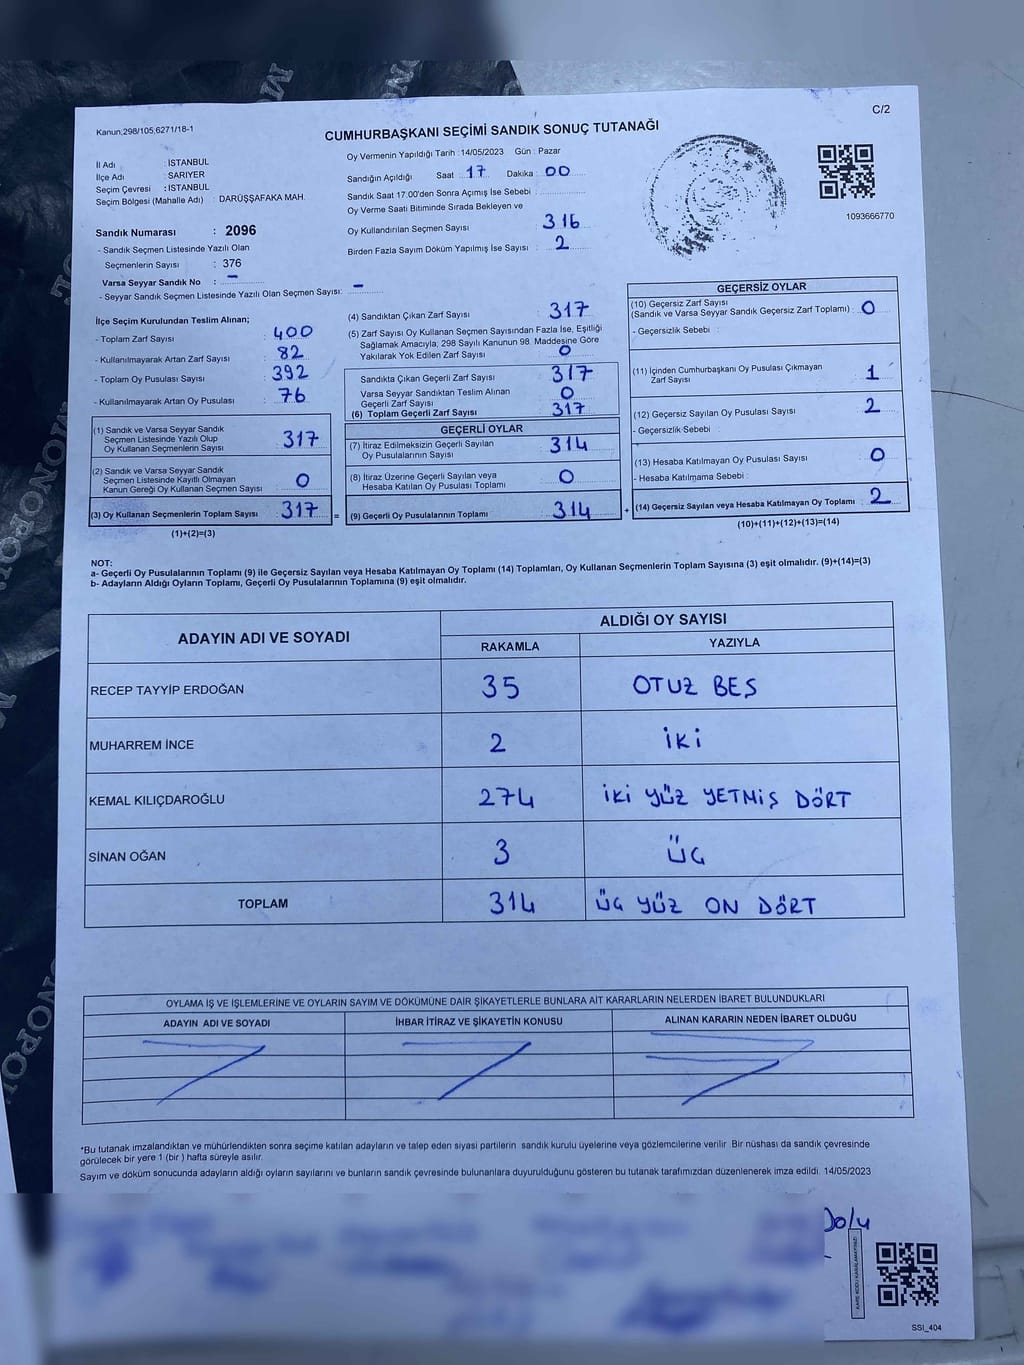 C/2
Kanun;298/105,6271/18-1
CUMHURBAŞKANI SEÇİMİ SANDIK SONUÇ TUTANAĞI
İl Adı : İSTANBUL
İlçe Adı : SARIYER
Seçim Çevresi : İSTANBUL
Seçim Bölgesi (Mahalle Adı) : DARÜŞŞAFAKA MAH.
Sandık Numarası : 2096
- Sandık Seçmen Listesinde Yazılı Olan
Seçmenlerin Sayısı : 376
Varsa Seyyar Sandık No : –
- Seyyar Sandık Seçmen Listesinde Yazılı Olan Seçmen Sayısı: –
Oy Vermenin Yapıldığı Tarih :14/05/2023 Gün : Pazar
Sandığın Açıldığı Saat : 17 Dakika : 00
Sandık Saat 17:00'den Sonra Açımış İse Sebebi :
Oy Verme Saati Bitiminde Sırada Bekleyen ve
Oy Kullandırılan Seçmen Sayısı : 316
Birden Fazla Sayım Döküm Yapılmış İse Sayısı : 2
1093666770
İlçe Seçim Kurulundan Teslim Alınan;
- Toplam Zarf Sayısı : 400
- Kullanılmayarak Artan Zarf Sayısı : 82
- Toplam Oy Pusulası Sayısı : 392
- Kullanılmayarak Artan Oy Pusulası : 76
(1) Sandık ve Varsa Seyyar Sandık
Seçmen Listesinde Yazılı Olup
Oy Kullanan Seçmenlerin Sayısı : 317
(2) Sandık ve Varsa Seyyar Sandık
Seçmen Listesinde Kayıtlı Olmayan
Kanun Gereği Oy Kullanan Seçmen Sayısı : 0
(3) Oy Kullanan Seçmenlerin Toplam Sayısı : 317 =
(1)+(2)=(3)
(4) Sandıktan Çıkan Zarf Sayısı : 317
(5) Zarf Sayısı Oy Kullanan Seçmen Sayısından Fazla İse, Eşitliği
Sağlamak Amacıyla; 298 Sayılı Kanunun 98. Maddesine Göre
Yakılarak Yok Edilen Zarf Sayısı : 0
Sandıkta Çıkan Geçerli Zarf Sayısı : 317
Varsa Seyyar Sandıktan Teslim Alınan
Geçerli Zarf Sayısı : 0
(6) Toplam Geçerli Zarf Sayısı : 317
GEÇERLİ OYLAR
(7) İtiraz Edilmeksizin Geçerli Sayılan
Oy Pusulalarının Sayısı : 314
(8) İtiraz Üzerine Geçerli Sayılan veya
Hesaba Katılan Oy Pusulası Toplamı : 0
(9) Geçerli Oy Pusulalarının Toplamı : 314 +
GEÇERSİZ OYLAR
(10) Geçersiz Zarf Sayısı
(Sandık ve Varsa Seyyar Sandık Geçersiz Zarf Toplamı) : 0
- Geçersizlik Sebebi :
(11) İçinden Cumhurbaşkanı Oy Pusulası Çıkmayan
Zarf Sayısı : 1
(12) Geçersiz Sayılan Oy Pusulası Sayısı : 2
- Geçersizlik Sebebi :
(13) Hesaba Katılmayan Oy Pusulası Sayısı : 0
- Hesaba Katılmama Sebebi :
(14) Geçersiz Sayılan veya Hesaba Katılmayan Oy Toplamı : 2
(10)+(11)+(12)+(13)=(14)
NOT:
a- Geçerli Oy Pusulalarının Toplamı (9) ile Geçersiz Sayılan veya Hesaba Katılmayan Oy Toplamı (14) Toplamları, Oy Kullanan Seçmenlerin Toplam Sayısına (3) eşit olmalıdır. (9)+(14)=(3)
b- Adayların Aldığı Oyların Toplamı, Geçerli Oy Pusulalarının Toplamına (9) eşit olmalıdır.
ADAYIN ADI VE SOYADI ALDIĞI OY SAYISI
RAKAMLA YAZIYLA
RECEP TAYYİP ERDOĞAN 35 OTUZ BEŞ
MUHARREM İNCE 2 İKİ
KEMAL KILIÇDAROĞLU 274 İKİ YÜZ YETMİŞ DÖRT
SİNAN OĞAN 3 ÜÇ
TOPLAM 314 ÜÇ YÜZ ON DÖRT
OYLAMA İŞ VE İŞLEMLERİNE VE OYLARIN SAYIM VE DÖKÜMÜNE DAİR ŞİKAYETLERLE BUNLARA AİT KARARLARIN NELERDEN İBARET BULUNDUKLARI
ADAYIN ADI VE SOYADI İHBAR İTİRAZ VE ŞİKAYETİN KONUSU ALINAN KARARIN NEDEN İBARET OLDUĞU
*Bu tutanak imzalandıktan ve mühürlendikten sonra seçime katılan adayların ve talep eden siyasi partilerin sandık kurulu üyelerine veya gözlemcilerine verilir. Bir nüshası da sandık çevresinde
görülecek bir yere 1 (bir ) hafta süreyle asılır.
Sayım ve döküm sonucunda adayların aldığı oyların sayılarını ve bunların sandık çevresinde bulunanlara duyurulduğunu gösteren bu tutanak tarafımızdan düzenlenerek imza edildi. 14/05/2023
KARE KODU KARALAMAYINIZ!
SSI_404
MONOPOL